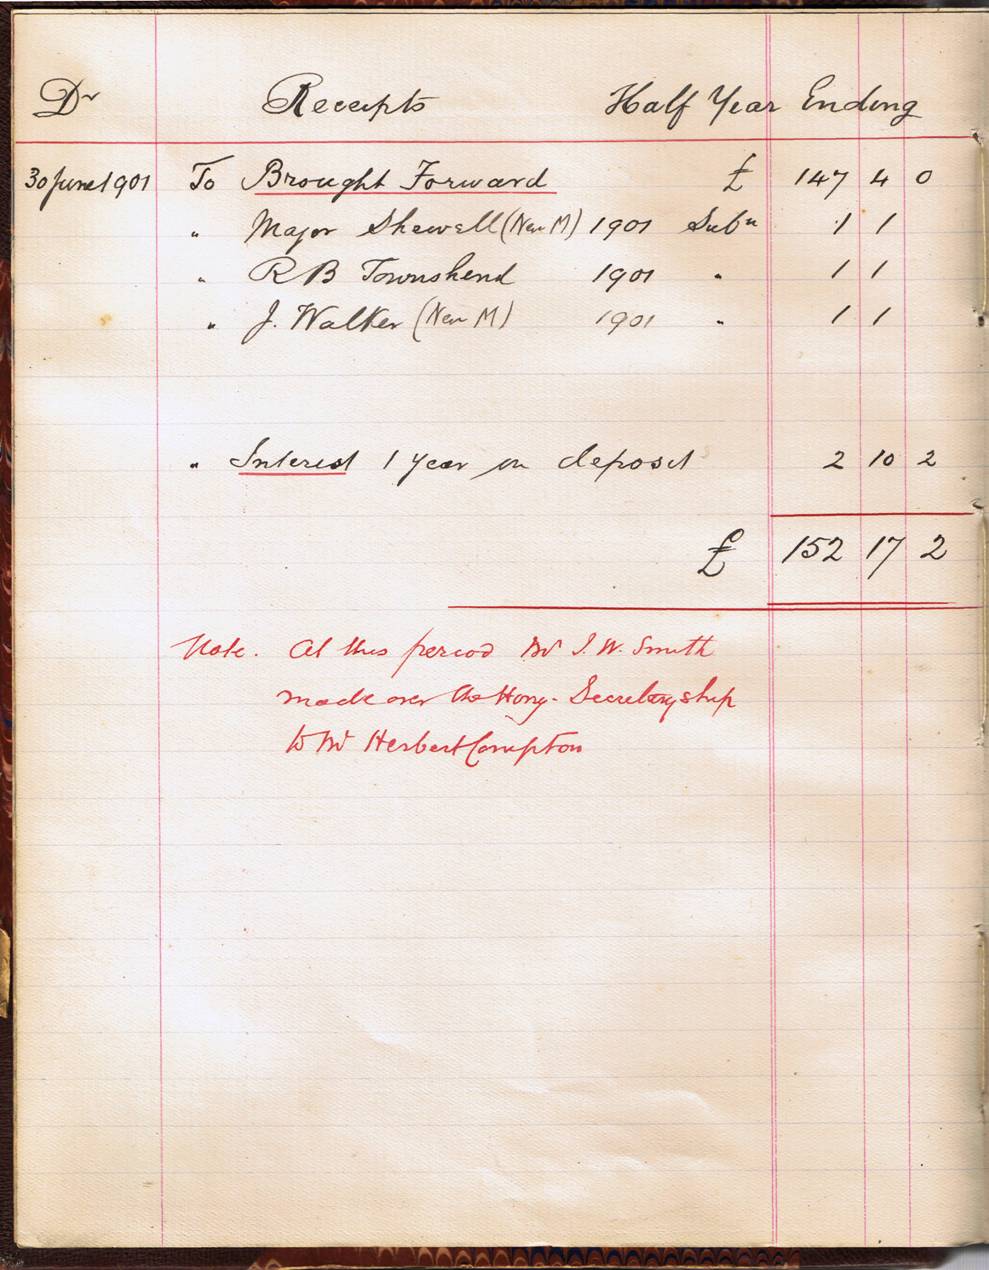 Dr Receipts Half Year Ending
30 June 1901 To Brought Forward £ 147 4 0
" Major Shewell (New M) 1901 Subn 1 1
" R B Townshend 1901 " 1 1
" J. Walker (New M) 1901 " 1 1
" Interest 1 year on deposit 2 10 2
£ 152 17 2
Note. At this period Mr J. W. Smith
made over the Hony. Secretaryship
to Mr Herbert Compton